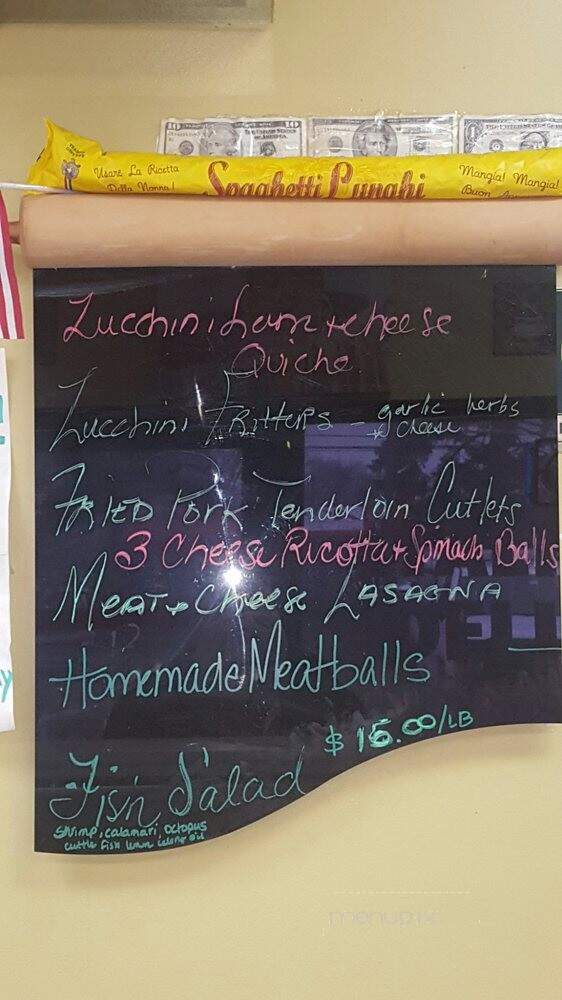 10 THE UNITED STATES OF AMERICA 10
Usare La Ricetta Della Nonna!
Spaghetti Lunghi
Mangia! Mangia!
Buon
Zucchini ham + cheese
Quiche
Zucchini Fritters - garlic herbs
cheese
FRIED Pork Tenderloin Cutlets
3 Cheese Ricotta + Spinach Balls
Meat + Cheese LASAGNA
Homemade Meatballs
$ 15.00/LB
Fish Salad
shrimp, calamari, octopus
cuttle fish lemon celery oil
menupix